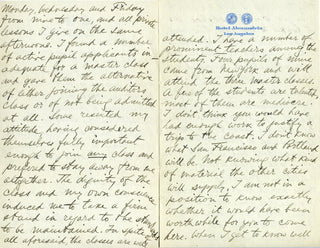 Monday, Wednesday and Friday
from nine to one, and all private
lessons I give on the same
afternoons. I found a number
of active pupil applicants in-
adequate for a master class
and gave them the alternative
of either joining the auditors
class or of not being admitted
at all. Some resented my
attitude, having considered
themselves fully important
enough to join any class and
preferred to stay away from me
altogether. The dignity of the
class and my own conscience
induced me to take a firm
stand in regard to the standard
to be maintained. In spite of
all aforesaid, the classes are well
Hotel Alexandria
Los Angeles
attended. I have a number of
prominent teachers among the
students. Four pupils of mine
came from New York and will
attend the three master classes.
A few of the students are talented,
most of them are mediocre.
I don't think you would have
had enough work to justify a
trip to the Coast. I don't know
what San Francisco and Portland
will be. Not knowing what kind
of material the other cities
will supply, I am not in a
position to know exactly
whether it would have been
worth while for you to come
here. When I get to know well